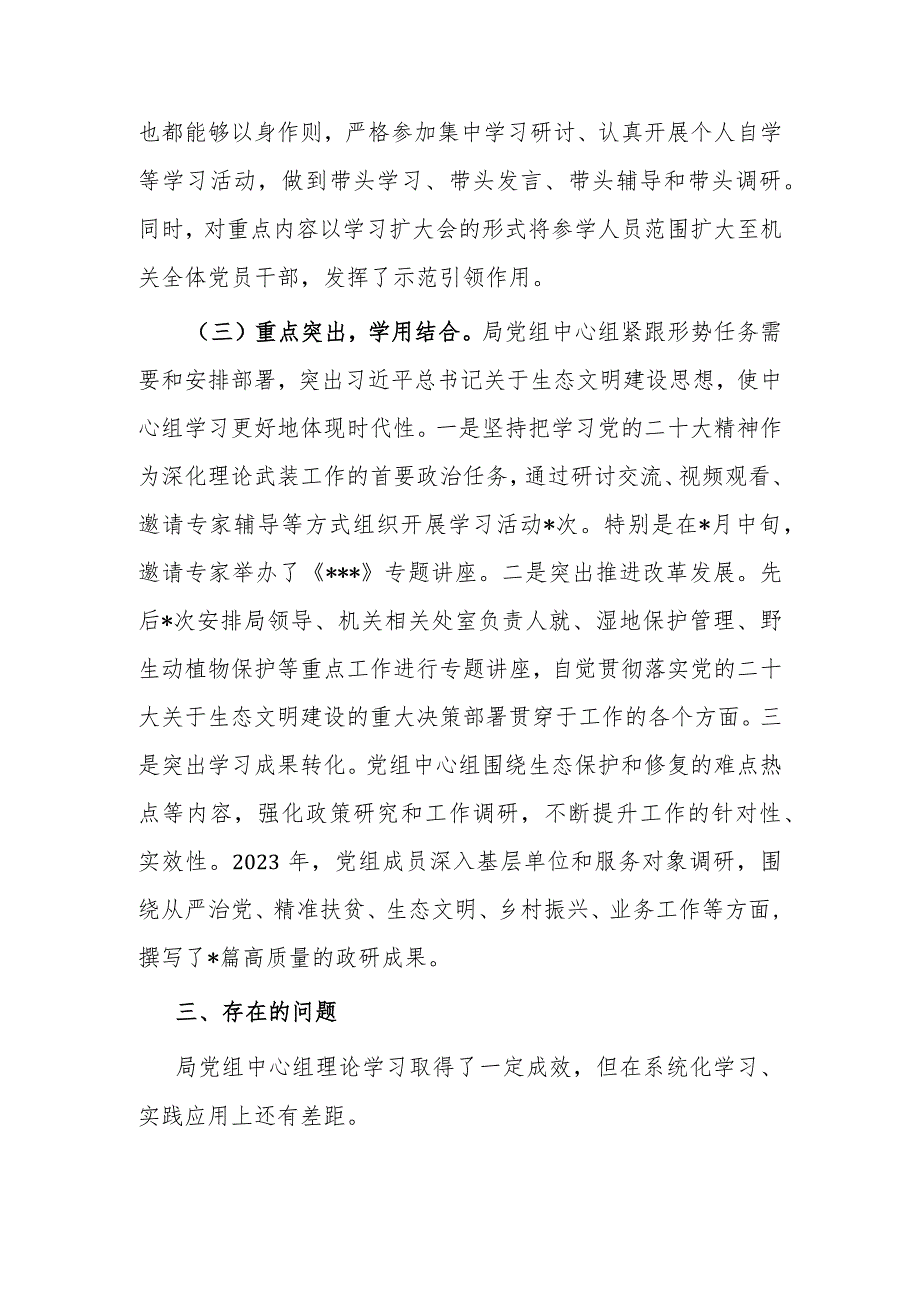 也都能够以身作则，严格参加集中学习研讨、认真开展个人自学
等学习活动，做到带头学习、带头发言、带头辅导和带头调研。
同时，对重点内容以学习扩大会的形式将参学人员范围扩大至机
关全体党员干部，发挥了示范引领作用。
（三）重点突出，学用结合。局党组中心组紧跟形势任务需
要和安排部署，突出习近平总书记关于生态文明建设思想，使中
心组学习更好地体现时代性。一是坚持把学习党的二十大精神作
为深化理论武装工作的首要政治任务，通过研讨交流、视频观看、
邀请专家辅导等方式组织开展学习活动*次。特别是在*月中旬，
邀请专家举办了《***》专题讲座。二是突出推进改革发展。先
后*次安排局领导、机关相关处室负责人就、湿地保护管理、野
生动植物保护等重点工作进行专题讲座，自觉贯彻落实党的二十
大关于生态文明建设的重大决策部署贯穿于工作的各个方面。三
是突出学习成果转化。党组中心组围绕生态保护和修复的难点热
点等内容，强化政策研究和工作调研，不断提升工作的针对性、
实效性。2023 年，党组成员深入基层单位和服务对象调研，围
绕从严治党、精准扶贫、生态文明、乡村振兴、业务工作等方面，
撰写了*篇高质量的政研成果。
三、存在的问题
局党组中心组理论学习取得了一定成效，但在系统化学习、
实践应用上还有差距。